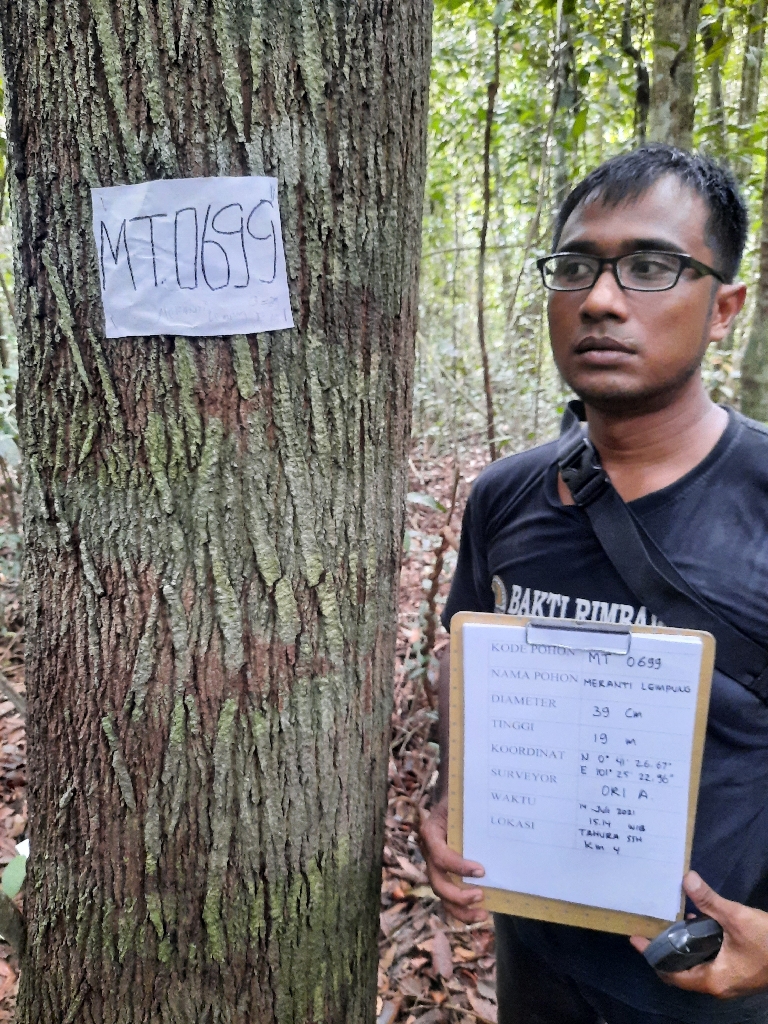 MT.0699
BAKTI RIMBA
KODE POHON MT 0699
NAMA POHON MERANTI LEMPUNG
DIAMETER 39 Cm
TINGGI 19 m
KOORDINAT N 0° 41' 26.67"
E 101° 25' 22.96"
SURVEYOR ORI A
WAKTU 14 JULI 2021
15.14 WIB
LOKASI TAHURA SSH
Km 4